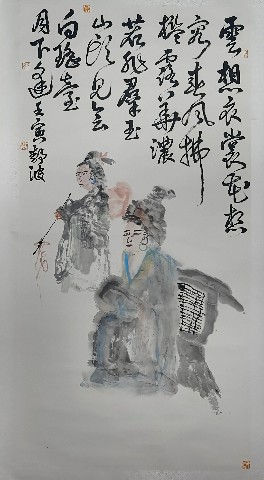 雲想衣裳花想
容春風拂
檻露華濃
若非群玉
山頭見會
向瑤臺
月下逢壬寅